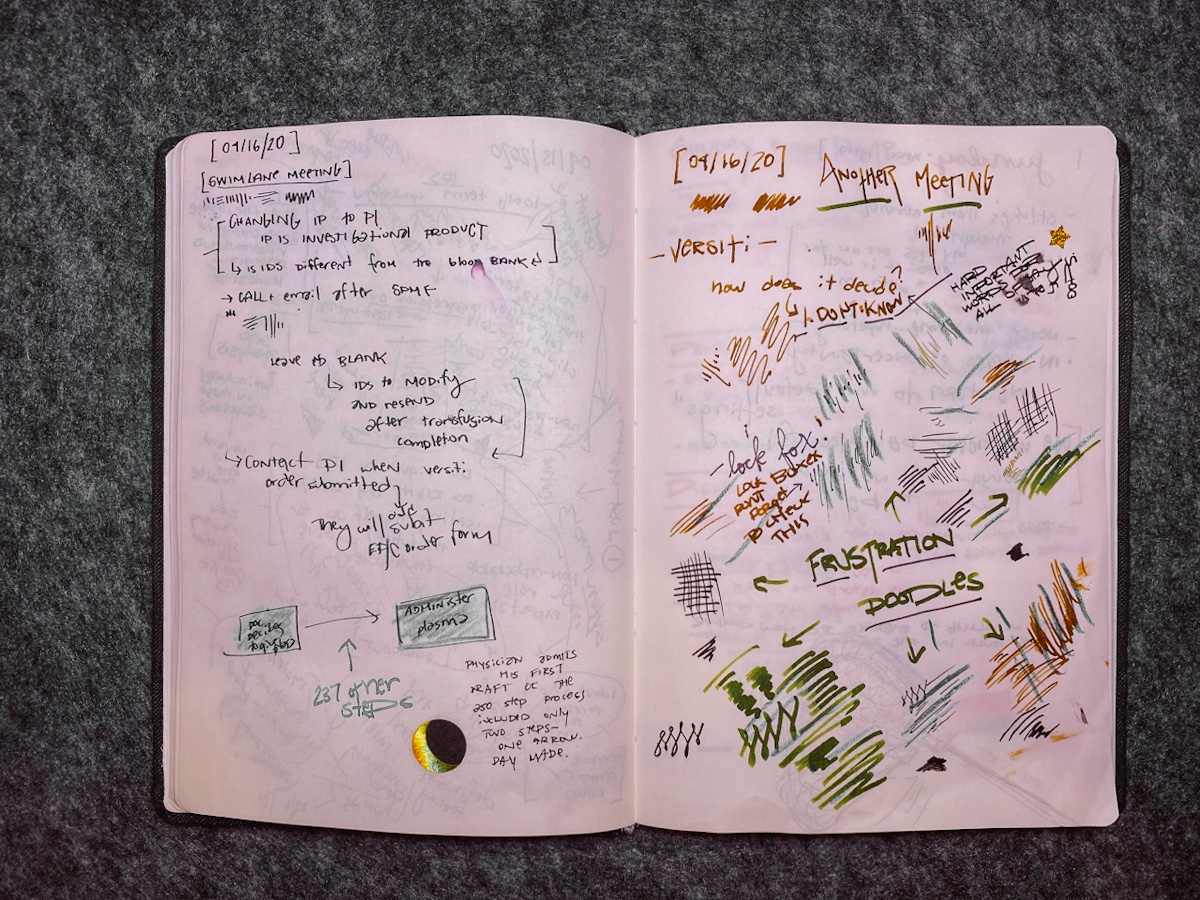 [04/16/20]
[SWIMLANE MEETING]
CHANGING IP TO PI
IP IS INVESTIGATIONAL PRODUCT
↳ IS IDS Different from the blood BANK
→ CALL + email after
leave BLANK
↳ IDS to MODIFY
AND RESEND
after transfusion
completion
↳ Contact PI when versiti
order submitted
They will
order form
ADMINISTER
plasma
237 OTHER
STEPS
PHYSICIAN ADMITS
HIS FIRST
DRAFT OF THE
250 STEP PROCESS
INCLUDED ONLY
TWO STEPS—
ONE ARROW.
DAY MADE.
[04/16/20]
ANOTHER MEETING
– VERSITI –
how does it decide?
I DON'T KNOW
HARD
IMPORTANT
ALL
– lock box!
LOCK BOXES
DON'T
FORGET
TO CHECK
THIS
FRUSTRATION
DOODLES